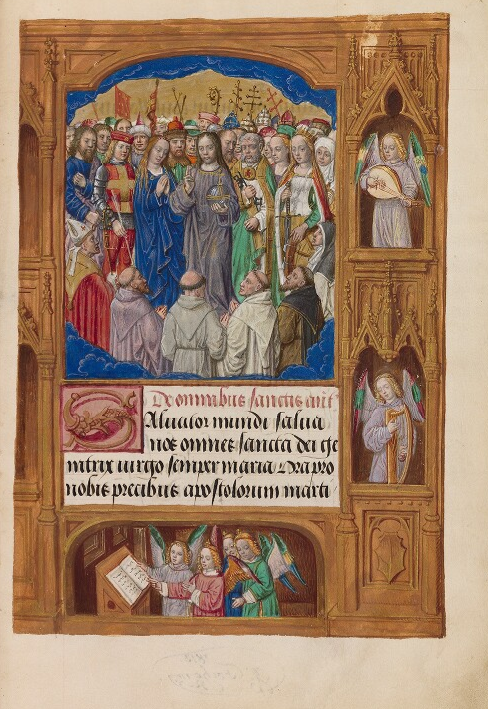 De omnibus sanctis ant̃
Salvator mundi salva
nos omnes sancta dei ge
nitrix virgo semper maria ora pro
nobis precibus apostolorum marti